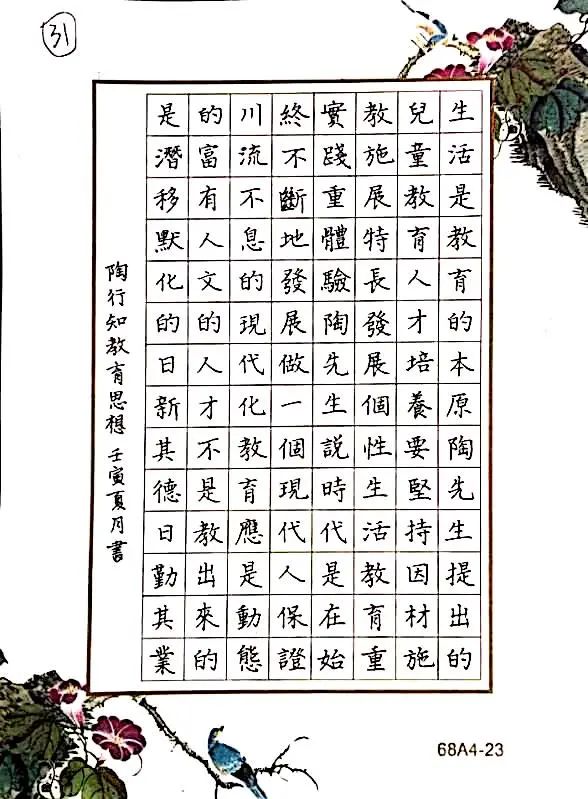 31
生活是教育的本原陶先生提出的
兒童教育人才培養要堅持因材施
教施展特長發展個性生活教育重
實踐重體驗陶先生説時代是在始
終不斷地發展做一個現代人保證
川流不息的現代化教育應是動態
的富有人文的人才不是教出來的
是潛移默化的日新其德日勤其業
陶行知教育思想 壬寅夏月書
68A4-23